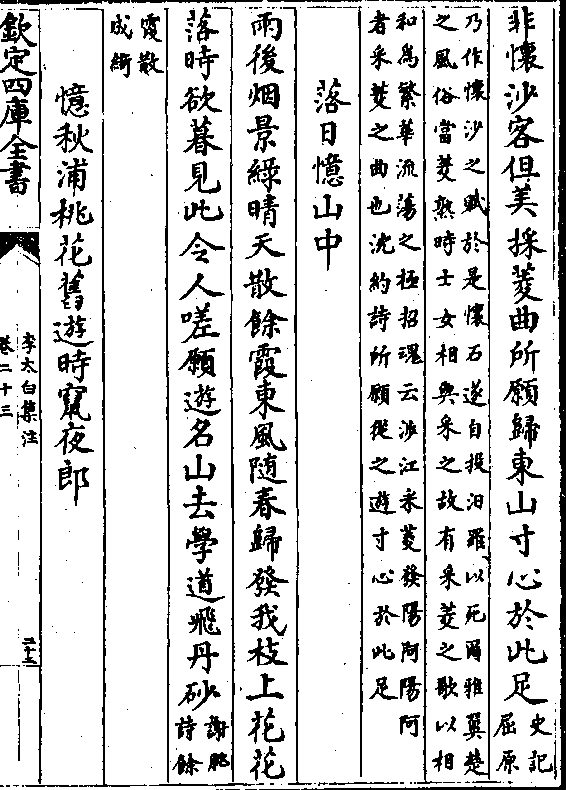 非懷沙客但美採菱曲所願歸東山寸心於此足史記
屈原
乃作懷沙之賦於是懷石遂自投汨羅以死爾雅翼楚
之風俗當菱熟時士女相與采之故有采菱之歌以相
和為繁華流蕩之極招魂云涉江采菱發陽阿陽阿
者采菱之曲也沈約詩所願從之遊寸心於此足
落日憶山中
雨後烟景綠晴天散餘霞東風随春歸發我枝上花花
落時欲暮見此令人嗟願遊名山去學道飛丹砂謝朓
詩餘
霞散
成綺
憶秋浦桃花舊遊時竄夜郎
欽定四庫全書
李太白集注
卷二十三
二十三